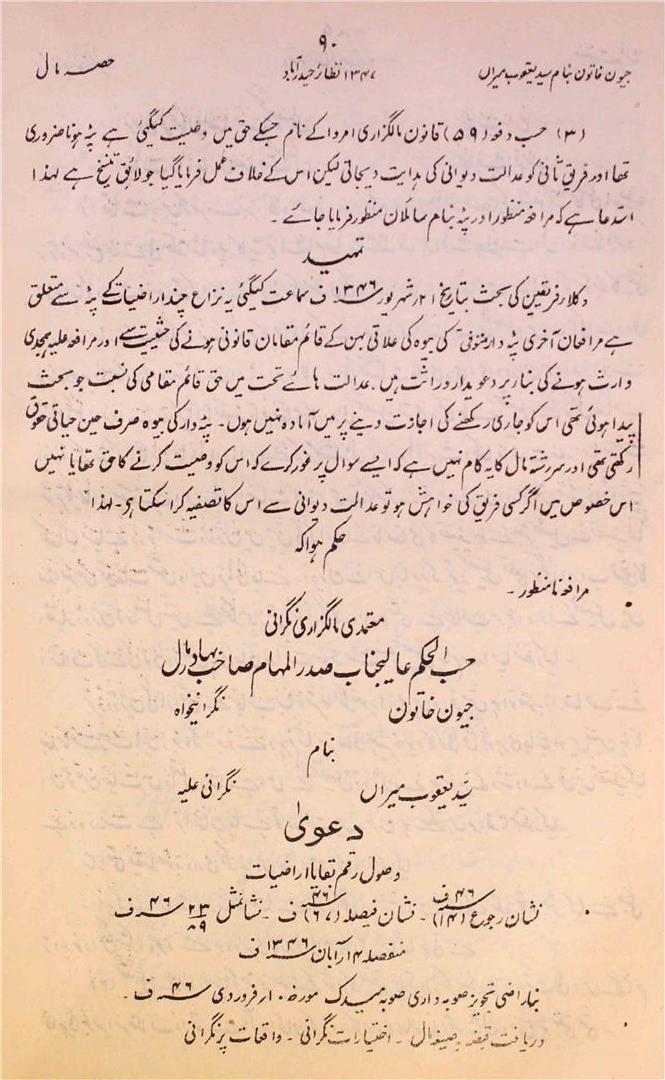 ۹۰
جیون خاتون بنام سید یعقوب میراں
۱۳۴۷ نظائر حیدرآباد
حصہ مال
(۳) حسب دفعہ (۵۹) قانون مالگزاری امر واکے نام جسکے حق میں وصیت کیگئی ہے پٹہ ہونا ضروری
تھا اور فریق ثانی کو عدالت دیوانی کی ہدایت دیجاتی لیکن اس کے خلاف عمل فرمایا گیا جو لائق تنسیخ ہے لہذا
استدعا ہے کہ مرافعہ منظور اور پٹہ بنام سائلان منظور فرمایا جائے ۔
تمہید
وکلاء فریقین کی بحث بتاریخ ۲۱؍ شہریور ۱۳۴۶ ف سماعت کیگئی یہ نزاع چند اراضیات کے پٹہ سے متعلق
ہے مرافعان آخری پٹہ دار متوفی کی بیوہ کی علاتی بہن کے قائم مقامان قانونی ہونے کی حیثیت سے اور مرافعہ علیہ یکجدی
وارث ہونے کی بناء پر دعویدار وراثت ہیں۔ عدالت ہائے تحت میں حق قائم مقامی کی نسبت جو بحث
پیدا ہوئی تھی اس کو جاری رکھنے کی اجازت دینے پر میں آمادہ نہیں ہوں۔ پٹہ دار کی بیوہ صرف حین حیاتی حقوق
رکھتی تھی اور سررشتہ مال کا یہ کام نہیں ہے کہ ایسے سوال پر غور کرے کہ اس کو وصیت کرنے کا حق تھا یا نہیں
اس خصوص میں اگر کسی فریق کی خواہش ہو تو عدالت دیوانی سے اس کا تصفیہ کرا سکتا ہے۔ لہذا
حکم ہوا کہ
مرافعہ نامنظور ۔
معتمدی مالگزاری نگرانی
حسب الحکم عالیجناب صدر المہام صاحب بہادر مال
جیون خاتون
نگرانیخواہ
بنام
سید یعقوب میراں
نگرانی علیہ
دعویٰ
وصول رقم بقایا اراضیات
نشان رجوع (۱۴۱) ۴۶ ف ۔ نشان فیصلہ (۶۷) ۴۶ ف ۔ نشان مثل ۲۳/۸۹ ۴۶ ف
منفصلہ ۴؍ آبان ۱۳۴۶ ف
بناراضی تجویز صوبہ داری صوبہ میدک مورخہ ۱۰؍ فروردی ۴۶ ف ۔
دریافت قبضہ بصیغہ مال ۔ اختیارات نگرانی ۔ واقعات پر نگرانی